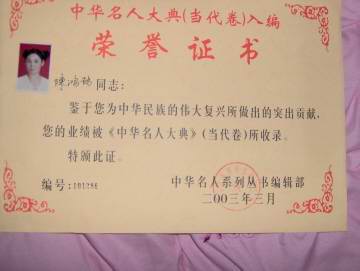 中华名人大典(当代卷)入编
荣誉证书
陈鸿 同志:
鉴于您为中华民族的伟大复兴所做出的突出贡献,
您的业绩被《中华名人大典》(当代卷)所收录。
特颁此证。
编号:101286
中华名人系列丛书编辑部
二00三年三月